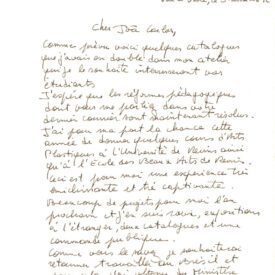 Cher João Carlos,
Comme prévu voici quelques catalogues
que j'avais en double dans mon atelier
je souhaite intéresseront vos
étudiants
J'espère que les réformes pédagogiques
dont vous me parliez dans votre
dernier courrier sont maintenant résolus.
J'ai pour ma part la chance cette
année de donner quelques cours d'Arts
Plastiques à l'Université de Reims ainsi
qu'à l'Ecole des Beaux Arts de Reims.
Ceci est pour moi une expérience très
enrichissante et très captivante.
Beaucoup de projets pour moi l'an
prochain et j'en suis ravie, expositions
à l'étranger, deux catalogues et une
commande publique.
Comme vous je souhaiterais
retourner travailler au Brésil et
du Ministère